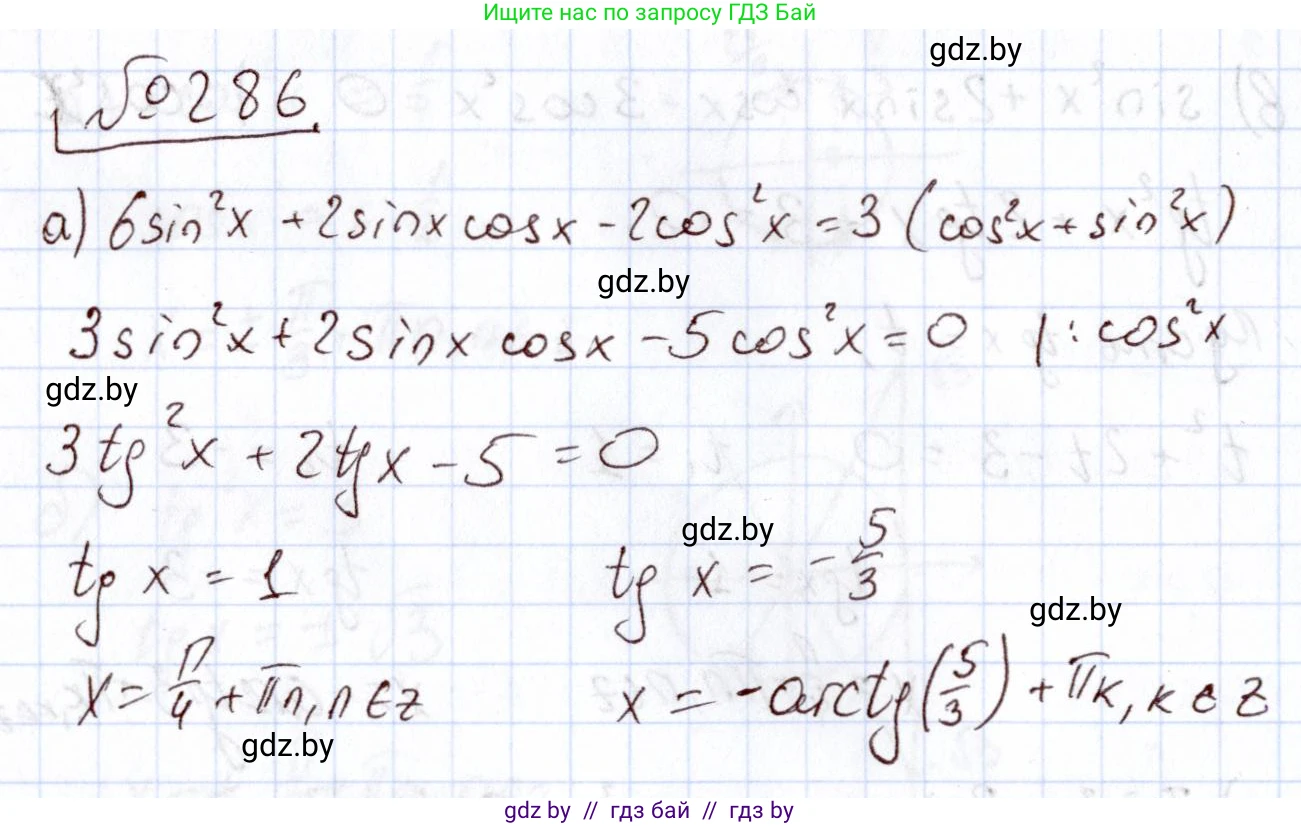 Ищите нас по запросу ГДЗ Бай
gdz.by
№286
а) 6sin²x + 2sinx cosx - 2cos²x = 3 (cos²x + sin²x)
gdz.by
3sin²x + 2sinx cosx - 5cos²x = 0 |: cos²x
gdz.by
3tg²x + 2tgx - 5 = 0
gdz.by
tg x = 1 tg x = -5/3
gdz.by
x = π/4 + πn, n ∈ z x = -arctg(5/3) + πk, k ∈ z
gdz.by
gdz by // гдз бай // гдз by